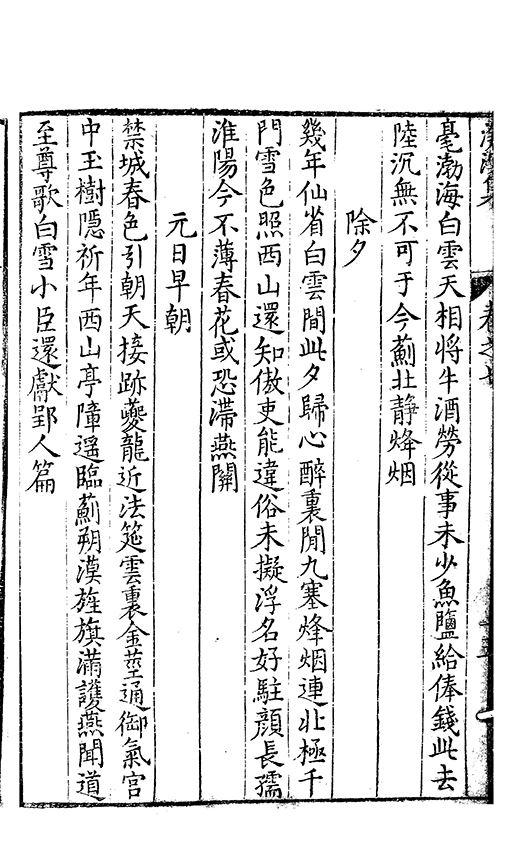 卷之七
毫渤海白雲天相將牛酒勞從事未少魚鹽給俸錢此去
陸沉無不可于今薊北静烽烟
除夕
幾年仙省白雲間此夕歸心醉裏閒九塞烽烟連北極千
門雪色照西山還知傲吏能違俗未擬浮名好駐顔長孺
淮陽今不薄春花或恐滯燕關
元日早朝
禁城春色引朝天接跡夔龍近法筵雲裏金莖通御氣宮
中玉樹隱祈年西山亭障遥臨薊朔漠旌旗滿護燕聞道
至尊歌白雪小臣還獻郢人篇